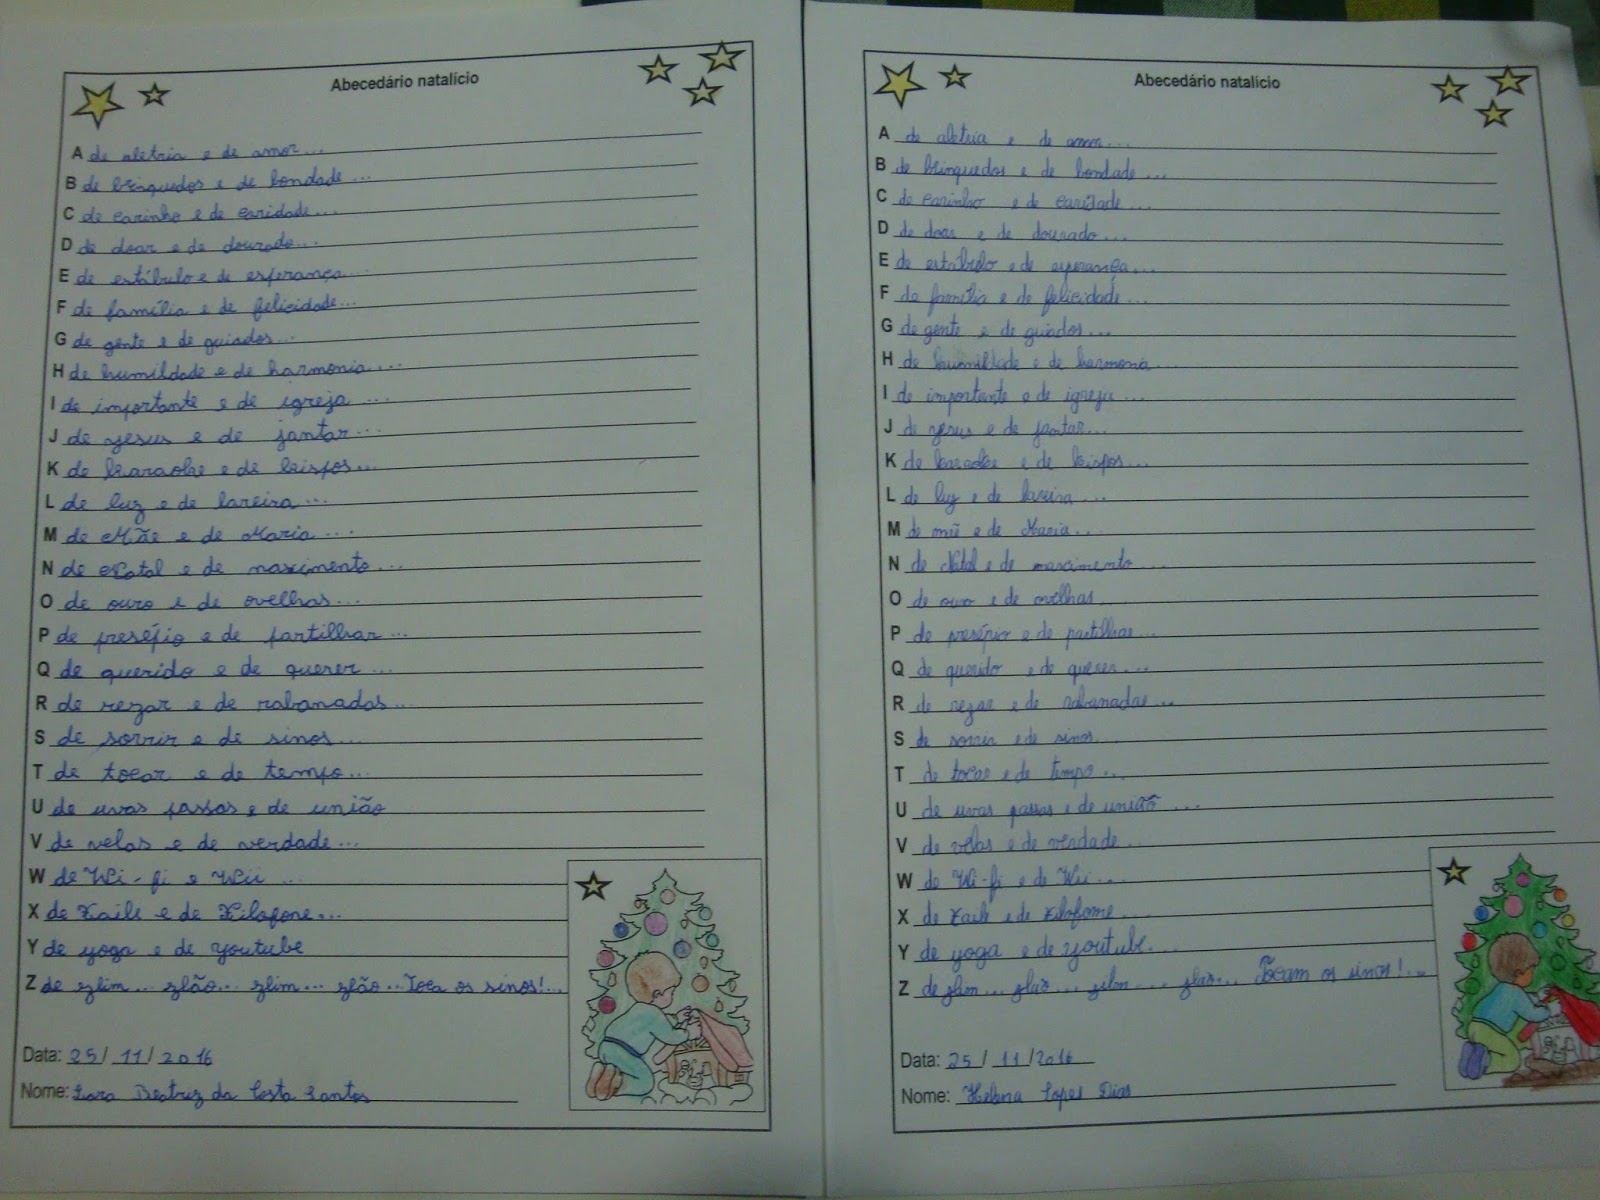 Abecedário natalício
A de aletria e de amor...
B de brinquedos e de bondade...
C de carinho e de caridade...
D de doar e de dourado...
E de estábulo e de esperança...
F de família e de felicidade...
G de gente e de guiados...
H de humildade e de harmonia....
I de importante e de igreja ...
J de Jesus e de jantar...
K de karaoke e de kispos...
L de luz e de lareira...
M de Mãe e de Maria ...
N de Natal e de nascimento...
O de ouro e de ovelhas...
P de presépio e de partilhar...
Q de querido e de querer...
R de rezar e de rabanadas...
S de sorrir e de sinos...
T de tocar e de tempo...
U de uvas passas e de união
V de velas e de verdade...
W de Wi-fi e Wii ...
X de Xaile e de Xilofone...
Y de yoga e de Youtube
Z de zlim... zlão... zlim... zlão...Toca os sinos!...
Data: 25/11/2016
Nome: Lara Beatriz da Costa Santos
Abecedário natalício
A de aletria e de amor...
B de brinquedos e de bondade...
C de carinho e de caridade...
D de doar e de dourado...
E de estábulo e de esperança...
F de família e de felicidade...
G de gente e de guiados...
H de humildade e de harmonia...
I de importante e de igreja...
J de Jesus e de jantar...
K de karaoke e de kispos...
L de luz e de lareira...
M de mãe e de Maria...
N de Natal e de nascimento...
O de ouro e de ovelhas...
P de presépio e de partilhar...
Q de querido e de querer...
R de rezar e de rabanadas...
S de sorrir e de sinos...
T de tocar e de tempo...
U de uvas passas e de união...
V de velas e de verdade...
W de Wi-fi e de Wii...
X de xaile e de xilofone...
Y de yoga e de Youtube...
Z de zlim... zlão... zlim.... zlão... Tocam os sinos!...
Data: 25/11/2016
Nome: Helena Lopes Dias